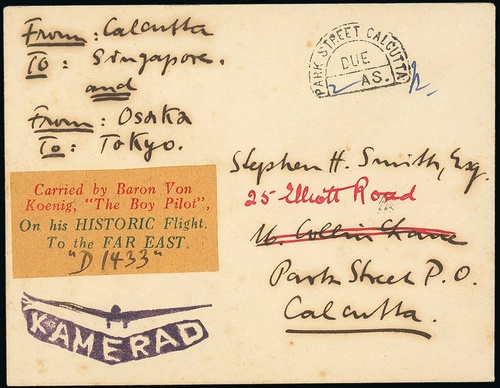 From: Calcutta
To: Singapore.
and
From: Osaka
To: Tokyo.
PARK STREET CALCUTTA
DUE
2 AS.
Carried by Baron Von
Koenig, "The Boy Pilot",
On his HISTORIC Flight.
To the FAR EAST.
"D 1433"
KAMERAD
Stephen H. Smith, Esq.
25 Elliott Road
Park Street P.O.
Calcutta.